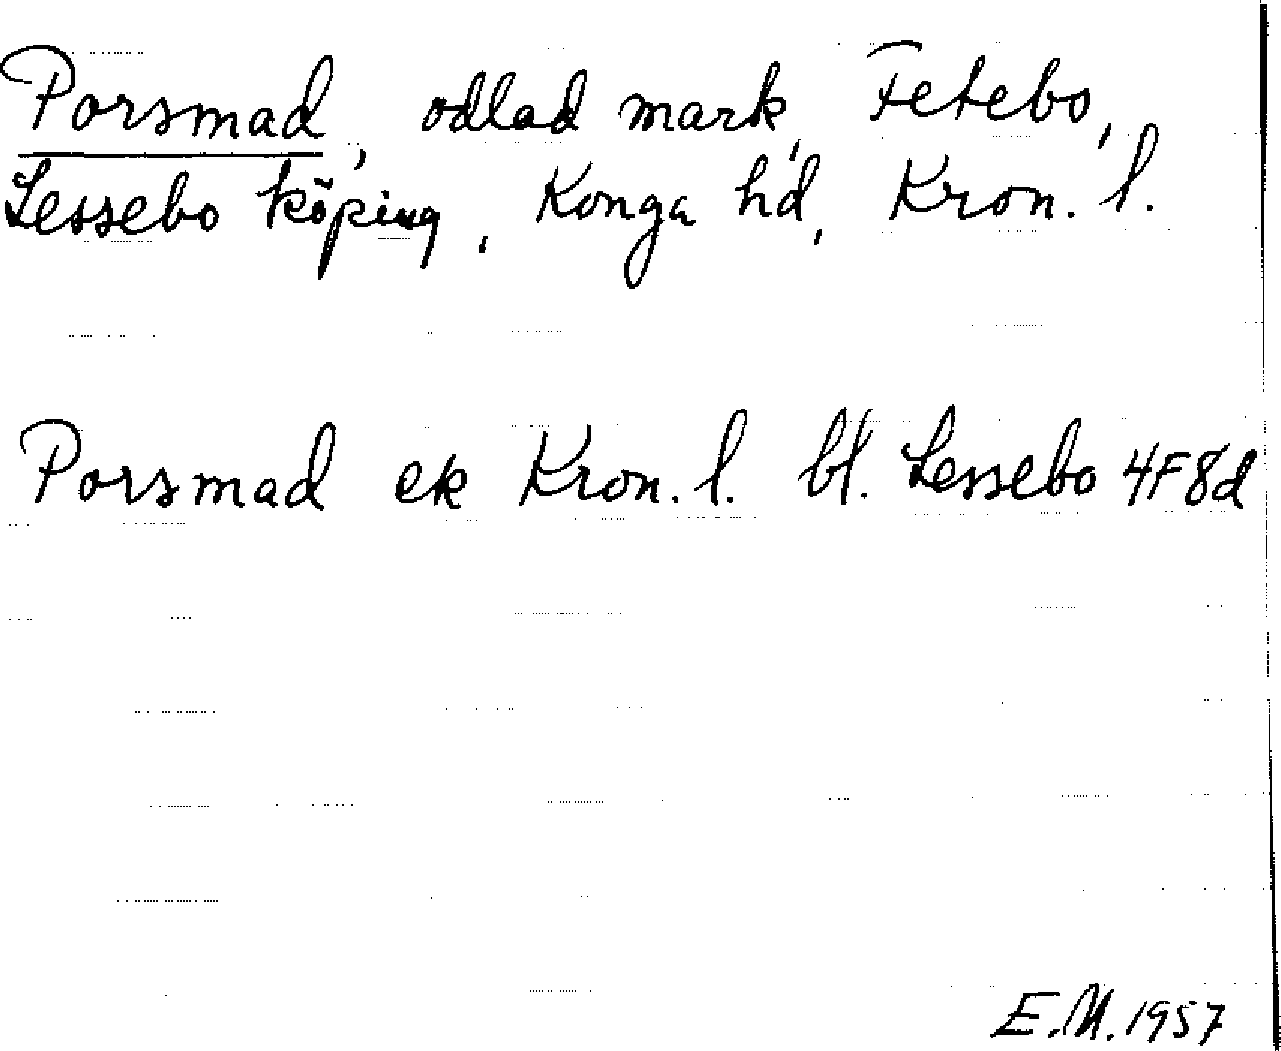 Porsmad, odlad mark, Fetebo,
Lessebo köping, Konga hd, Kron. l.
Porsmad ek Kron. l. bl. Lessebo 4F8d
E.M. 1957